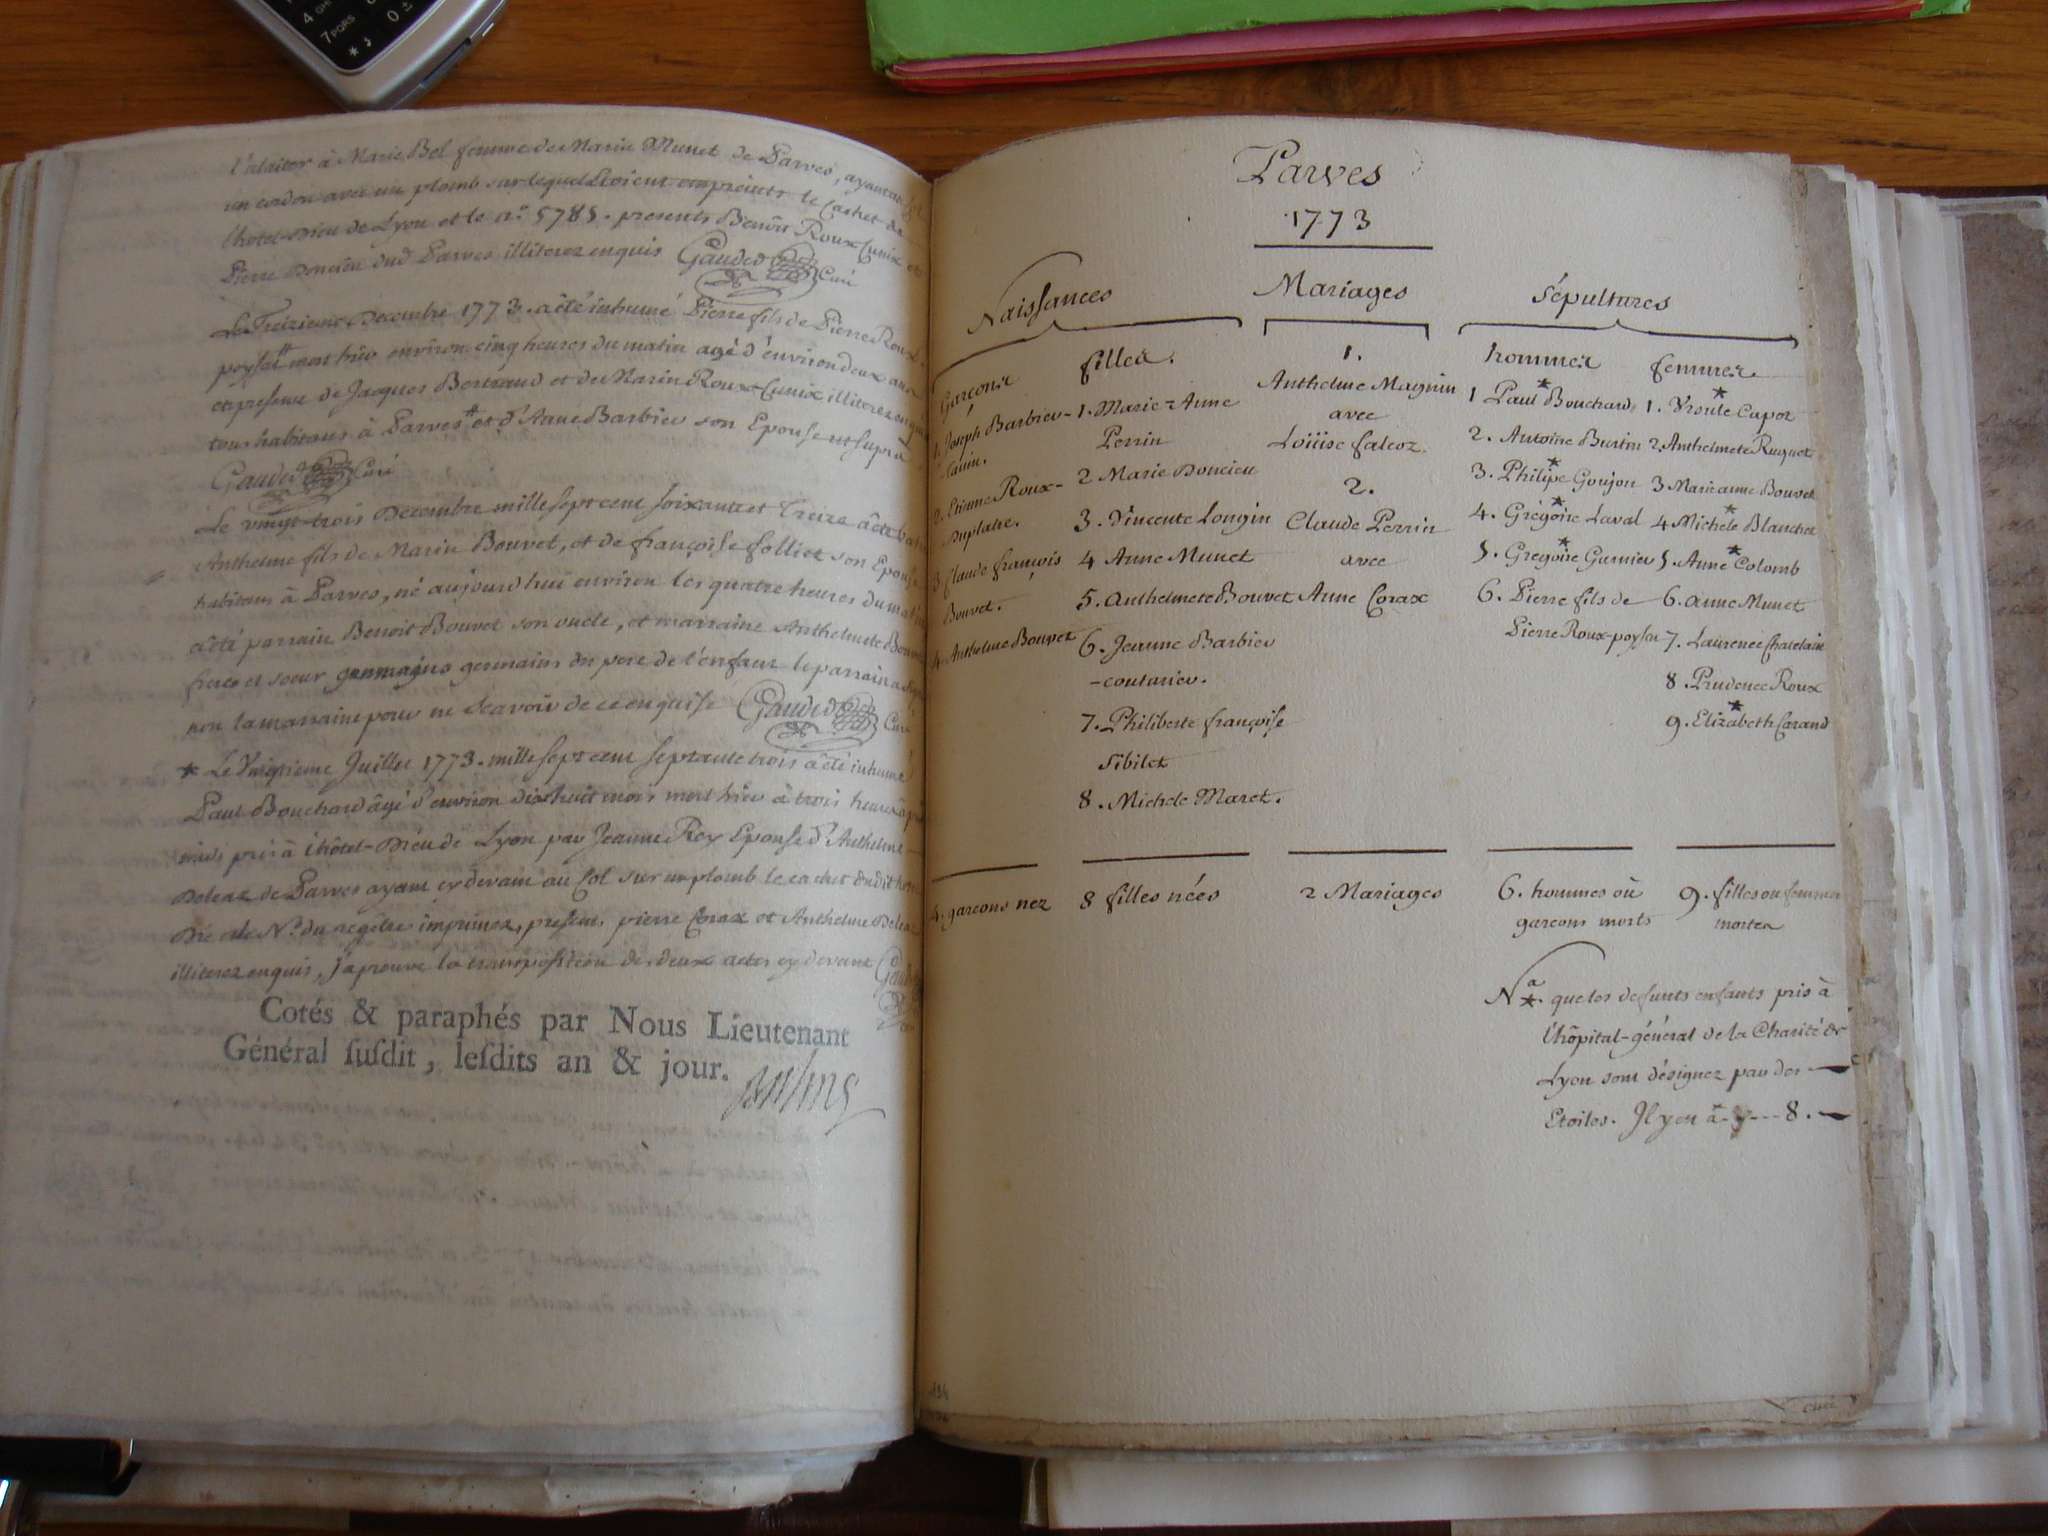 l'alaiter à Marie Bel femme de Marin Munet de Parves, ayant au
un cordon avec un plomb sur lequel étoient empreints le cachet de
l'hotel-Dieu de Lyon et le n.° 5785. presents Benôit Roux Cunix et
Pierre Doncieu dud Parves illiterez enquis Gauded Curé
Le Treizieme Decembre 1773. a été inhumé Pierre fils de Pierre Roux
poysat mort hier environ cinq heures du matin agé d'environ deux ans
en presence de Jacques Bertrand et de Marin Roux-Cunix illiterez enquis
tous habitans à Parves et d'Anne Barbier son Epouse ut supra
Gauded Curé
Le vingt-trois Decembre mille sept cent soixante et Treize a été
Anthelme fils de Marin Bouvet, et de françoise folliet son Epouse
habitans à Parves, né aujourd'hui environ les quatre heures du matin
a été parrain Benoit Bouvet son oncle, et marraine Anthelmete Bouvet
freres et soeur germains du pere de l'enfant le parrain a
non la marraine pour ne sçavoir de ce enquise Gauded Curé
* Le Vingtieme Juillet 1773. mille sept cent septante trois a été inhumé
Paul Bouchard âgé d'environ dixhuit mois mort hier à trois heures
midi pris à l'hôtel-Dieu de Lyon par Jeanne Rey Epouse d'Anthelme
Deleaz de Parves ayant cy devant au Col sur un plomb le cachet dudit hotel
Die et le N.° du registre imprimez, presens pierre Corax et Anthelme Deleaz
illiterez enquis, j'aprouve la transposition de deux actes cy devant
Cotés & paraphés par Nous Lieutenant
Général susdit, lesdits an & jour.
Parves
1773
Naissances
Garçons
1. Joseph Barbier-
Cauin.
2. Etienne Roux-
Duplatre.
3 Claude françois
Bouvet.
4. Anthelme Bouvet
filles.
1. Marie-Anne
Perrin
2 Marie Doncieu
3. Vincente Longin
4 Anne Munet
5. Anthelmete Bouvet
6. Jeanne Barbier
-couturier.
7. Philiberte françoise
Sibilet
8. Michele Maret.
Mariages
1.
Anthelme Magnin
avec
Loüise falcoz.
2.
Claude Perrin
avec
Anne Corax
Sépultures
hommes
1 Paul Bouchard
2. Antoine Burtin
3. Philipe Goujon
4. Grégoire Laval
5. Gregoire Garnier
6. Pierre fils de
Pierre Roux-poysat
femmes
1. Vrsule Capoz
2. Anthelmete Ruquet
3 Marie anne Bouvet
4 Michele Blanchet
5. Anne Colomb
6. Anne Munet
7. Laurence Chatelain
8. Prudence Roux
9. Elizabeth Carand
4. garcons nez
8 filles nées
2 Mariages
6. hommes où
garcons morts
9. filles ou femmes
mortes
Na *. que les defunts enfants pris à
l'hôpital-général de la Charité de
Lyon sont désignez par des
Etoiles. Il y en a 8.